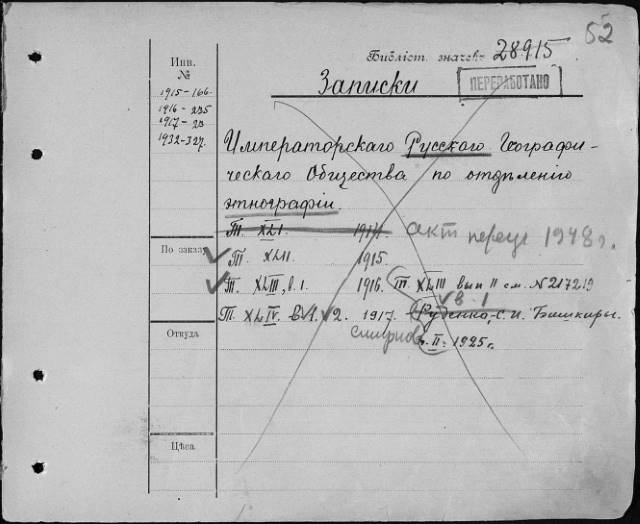 52
Библіот. значекъ 28915
Инв.
№
Записки
ПЕРЕРАБОТАНО
1915-166.
1916-235
1917-23
1932-327.
Императорскаго Русскаго Географи-
ческаго Общества по отдѣленію
этнографіи.
Т. XLI. 1914. акт переуч 1948 г.
По заказу
Т. XLII. 1915.
Т. XLIII, в.1. 1916. Т. XLIII вып II см. N 217219
в. 1
Т. XLIV. в. 1. 2. 1917. Руденко, С. И. Башкиры.
Откуда
Смирнов
в. II. 1925 г.
Цѣна.